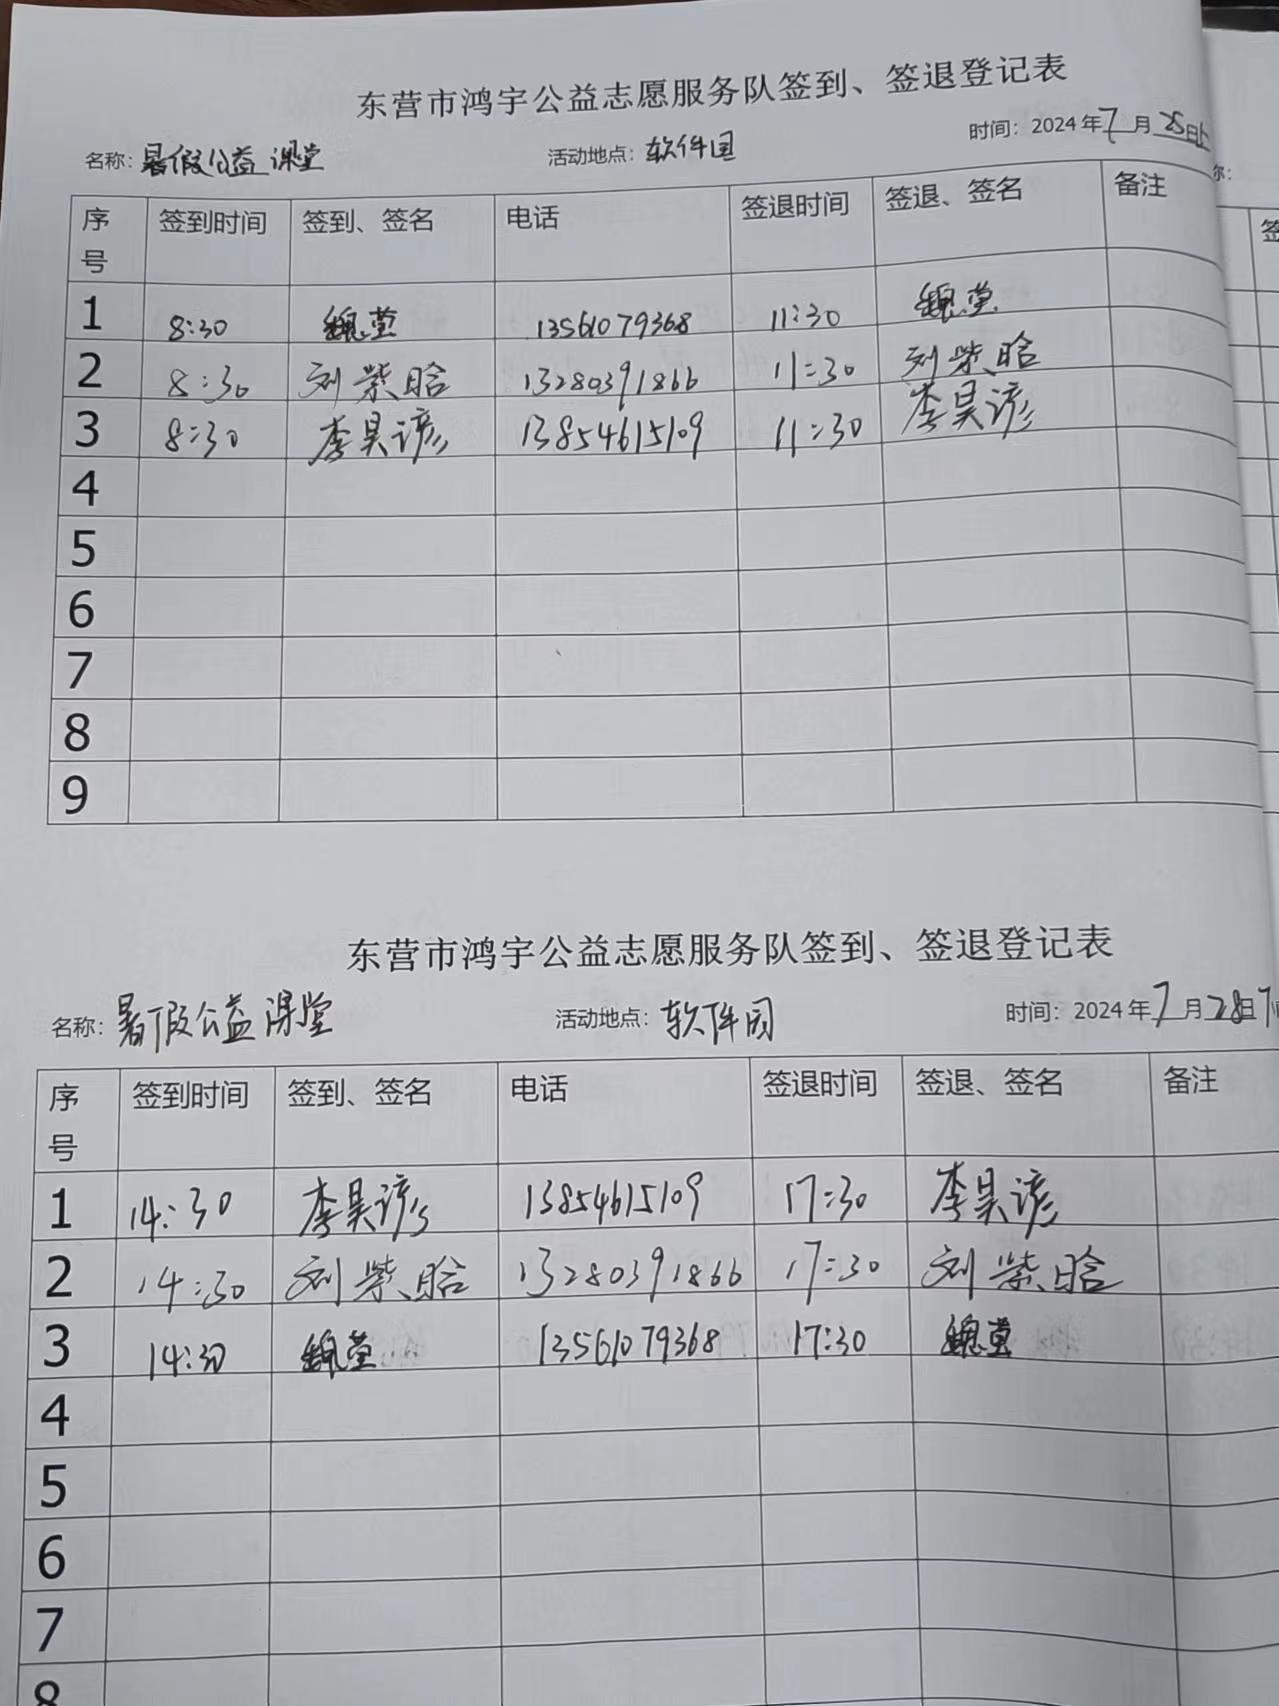 东营市鸿宇公益志愿服务队签到、签退登记表
名称：暑假公益课堂 活动地点：软件园 时间：2024年7月25日上
序号 签到时间 签到、签名 电话 签退时间 签退、签名 备注
1 8:30 魏莹 13561079368 11:30 魏莹
2 8:30 刘紫晗 13280391866 11:30 刘紫晗
3 8:30 李昊谚 13854615109 11:30 李昊谚
4
5
6
7
8
9
东营市鸿宇公益志愿服务队签到、签退登记表
名称：暑假公益课堂 活动地点：软件园 时间：2024年7月28日下
序号 签到时间 签到、签名 电话 签退时间 签退、签名 备注
1 14:30 李昊谚 13854615109 17:30 李昊谚
2 14:30 刘紫晗 13280391866 17:30 刘紫晗
3 14:30 魏莹 13561079368 17:30 魏莹
4
5
6
7
8